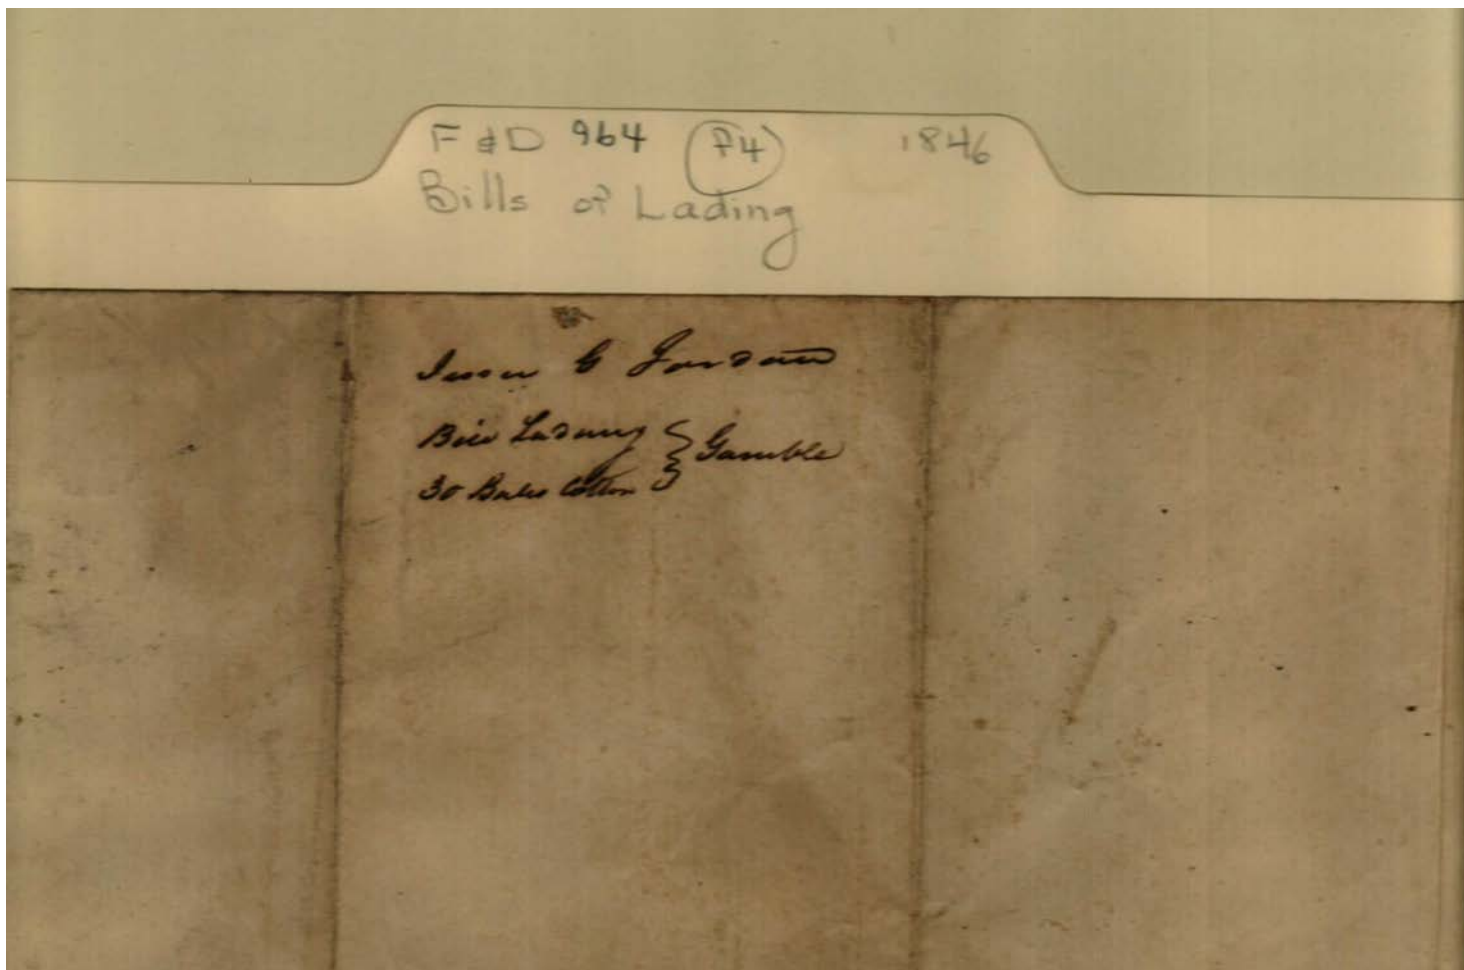 F & D 964 P4 1846
Bills of Lading
G Jordan
Bill Lading } Gamble
30 Bales Cotton